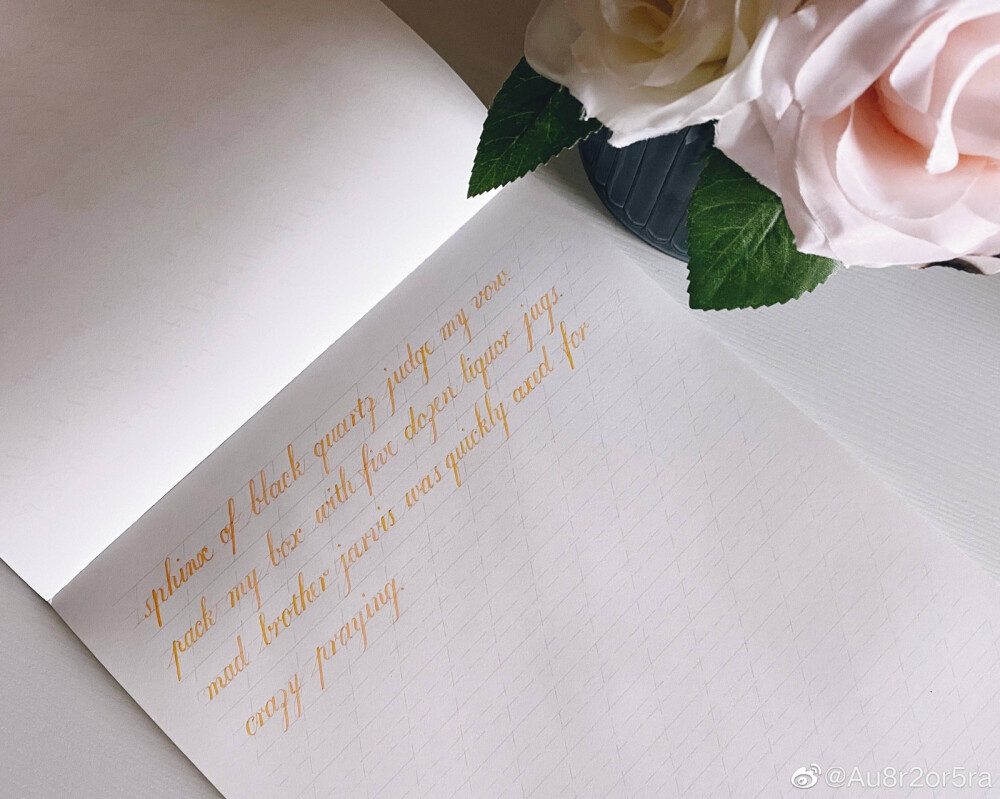 sphinx of black quartz judge my vow.
pack my box with five dozen liquor jugs.
mad brother jarvis was quickly axed for
crazy praying.
@Au8r2or5ra